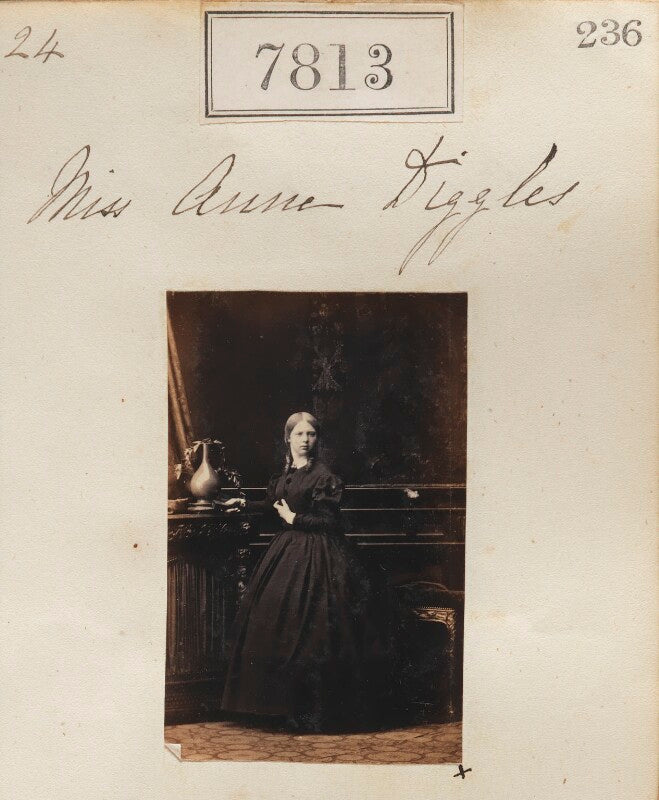 24
7813
236
Miss Anne Diggles
x